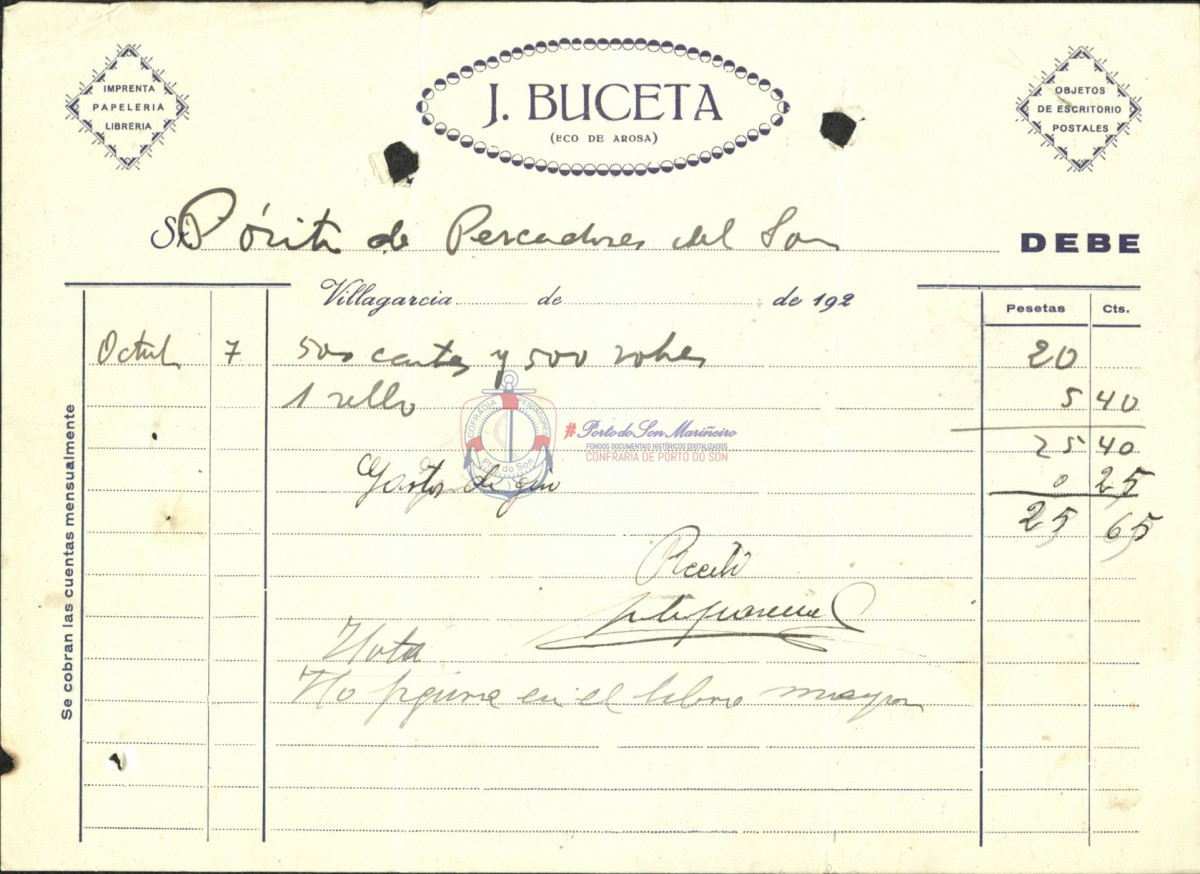 IMPRENTA
PAPELERIA
LIBRERIA
J. BUCETA
(ECO DE AROSA)
OBJETOS
DE ESCRITORIO
POSTALES
Sr. Pósito de Pescadores del Son
DEBE
Villagarcia de de 192
Pesetas Cts.
Octub 7 500 cartas y 500 sobres 20
1 sello 5 40
25 40
Gastos de 0 25
25 65
Recibí
Nota
No figura en el libro mayor
Se cobran las cuentas mensualmente
COFRADIA PESCADORES
Pto. do Son
#Porto do Son Mariñeiro
FONDOS DOCUMENTAIS HISTÓRICOS DIXITALIZADOS
CONFRARIA DE PORTO DO SON